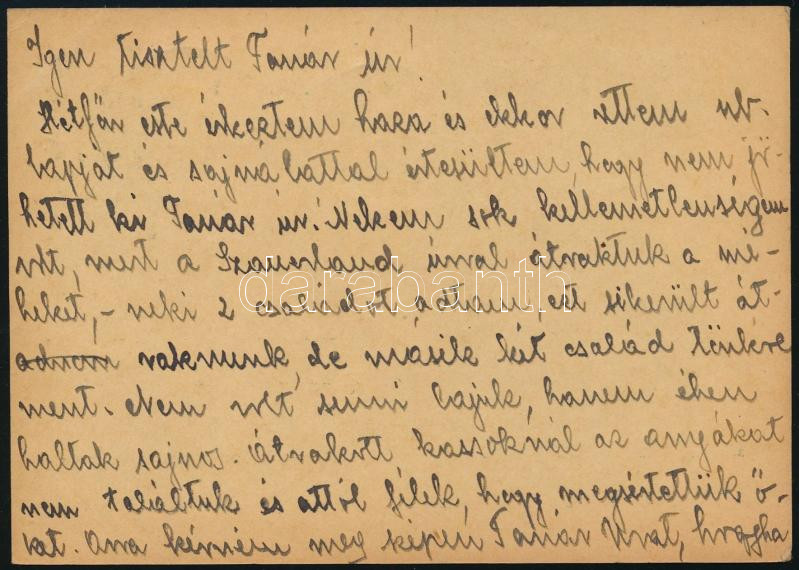 Igen tisztelt Tanár úr!
Hétfőn este érkeztem haza és ekkor vettem nb.
lapját és sajnálattal értesültem, hogy nem jö-
hetett ki Tanár úr! Nekem sok kellemetlenségem
volt, mert a Szauerlaud úrral átraktuk a mé-
heket, - neki 2 családot adtam, ezt sikerült át-
adnom raknunk, de másik két család tönkre
ment. Nem volt semmi bajuk, hanem éhen
haltak sajnos. Átrakott kassoknál az anyákat
nem találtuk és attól félek, hogy megsértettük ő-
ket. Arra kérném meg képen Tanár Urat, hogyha
darabanth